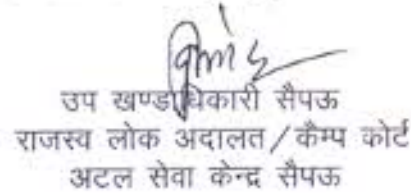 उप खण्डाधिकारी सैपऊ
राजस्व लोक अदालत/कैम्प कोर्ट
अटल सेवा केन्द्र सैपऊ